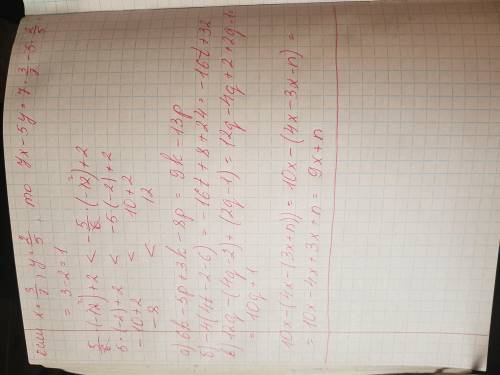 если x = 3/7, y = 2/5, то 7x - 5y = 7·3/7 - 5·2/5
= 3 - 2 = 1
5/6·(-12) + 2 < -5/6·(-12) + 2
5·(-2) + 2 < -5·(-2) + 2
-10 + 2 < 10 + 2
-8 < 12
а) 6k - 5p + 3k - 8p = 9k - 13p
б) -4(4t - 2 - 6) = -16t + 8 + 24 = -16t + 32
в) 12q - (4q - 2) + (2q - 1) = 12q - 4q + 2 + 2q - 1 =
= 10q + 1
10x - (4x - (3x + n)) = 10x - (4x - 3x - n) =
= 10x - 4x + 3x + n = 9x + n